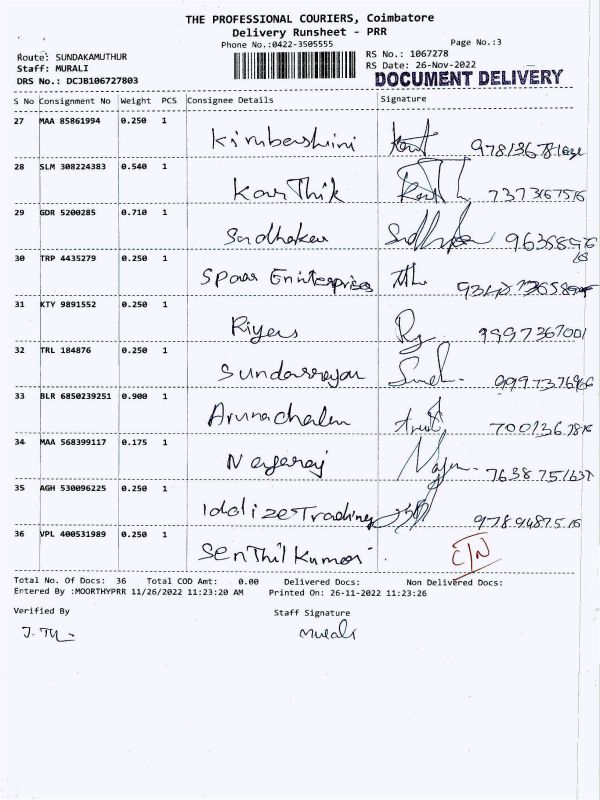 THE PROFESSIONAL COURIERS, Coimbatore
Delivery Runsheet - PRR
Phone No.:0422-3505555
Page No.:3
Route: SUNDAKAMUTHUR
Staff: MURALI
DRS No.: DCJB106727803
RS No.: 1067278
RS Date: 26-Nov-2022
DOCUMENT DELIVERY
S No Consignment No Weight PCS Consignee Details Signature
27 MAA 85861994 0.250 1 Kimbershini
28 SLM 308224383 0.540 1 KarThik
29 GDR 5200285 0.710 1 Sudhakar
30 TRP 4435279 0.250 1
31 KTY 9891552 0.250 1 Riyers 9997367001
32 TRL 184876 0.250 1 Sundarrajan
33 BLR 6850239251 0.900 1 Arunachalm
34 MAA 568399117 0.175 1 Nagaraj
35 AGH 530096225 0.250 1 Idolize Trading
36 VPL 400531989 0.250 1 Senthil Kumar C/N
Total No. Of Docs: 36 Total COD Amt: 0.00 Delivered Docs: Non Delivered Docs:
Entered By :MOORTHYPRR 11/26/2022 11:23:20 AM Printed On: 26-11-2022 11:23:26
Verified By Staff Signature
Murali